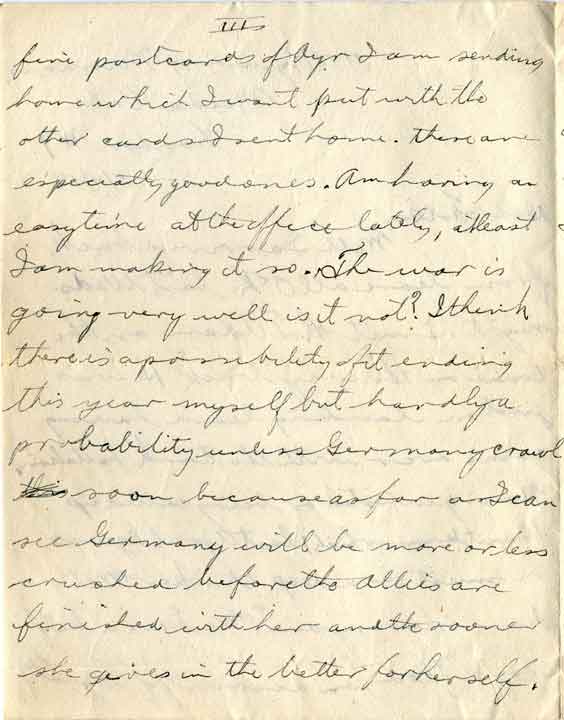 III
fine postcards of Ayr I am sending
home which I want put with the
other cards I sent home. these are
especially good ones. Am having an
easy time at the office lately, atleast
I am making it so. The war is
going very well is it not? I think
there is a possibility of it ending
this year myself but hardly a
probability unless Germany crawl
soon because as far as I can
see Germany will be more or less
crushed before the Allies are
finished with her and the sooner
she gives in the better for herself.